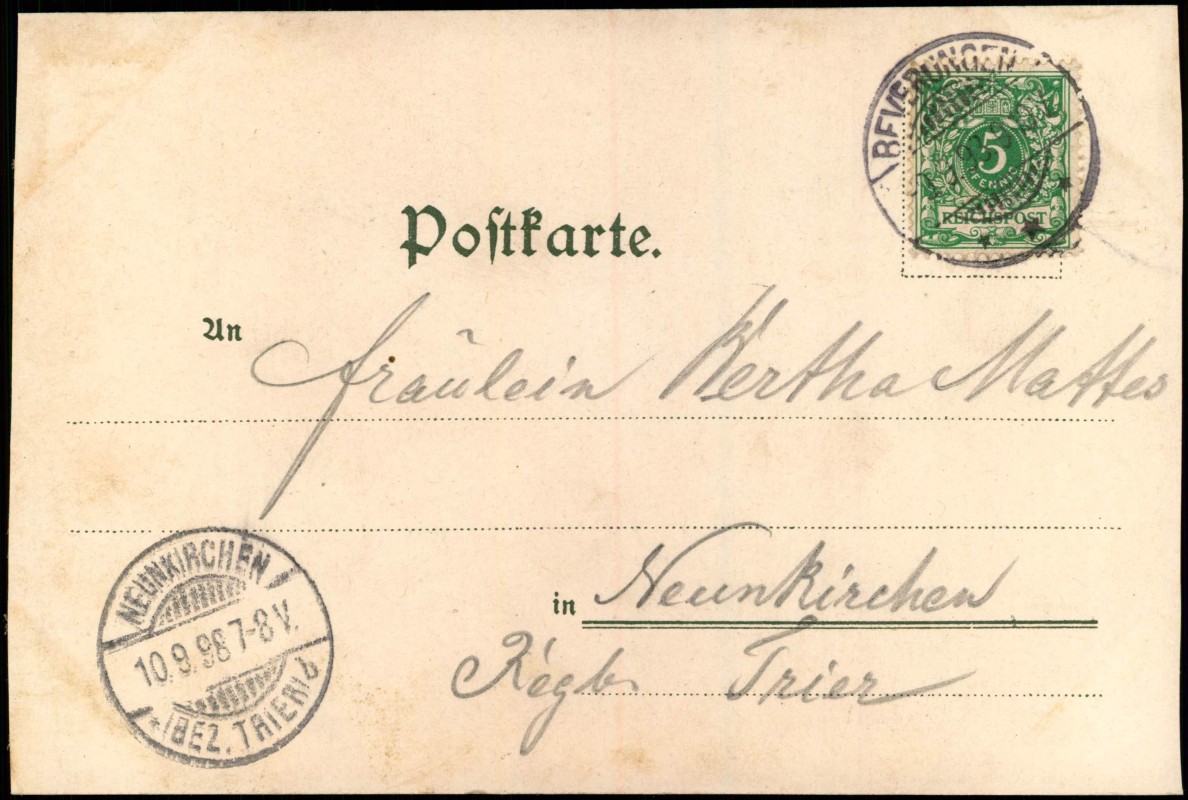 BEVERUNGEN
5
PFENNIG
REICHSPOST
Postkarte.
An
Fräulein Bertha Mattes
in Neunkirchen
Régb. Trier
NEUNKIRCHEN
10.9.98 7-8 V.
* (BEZ. TRIER) b